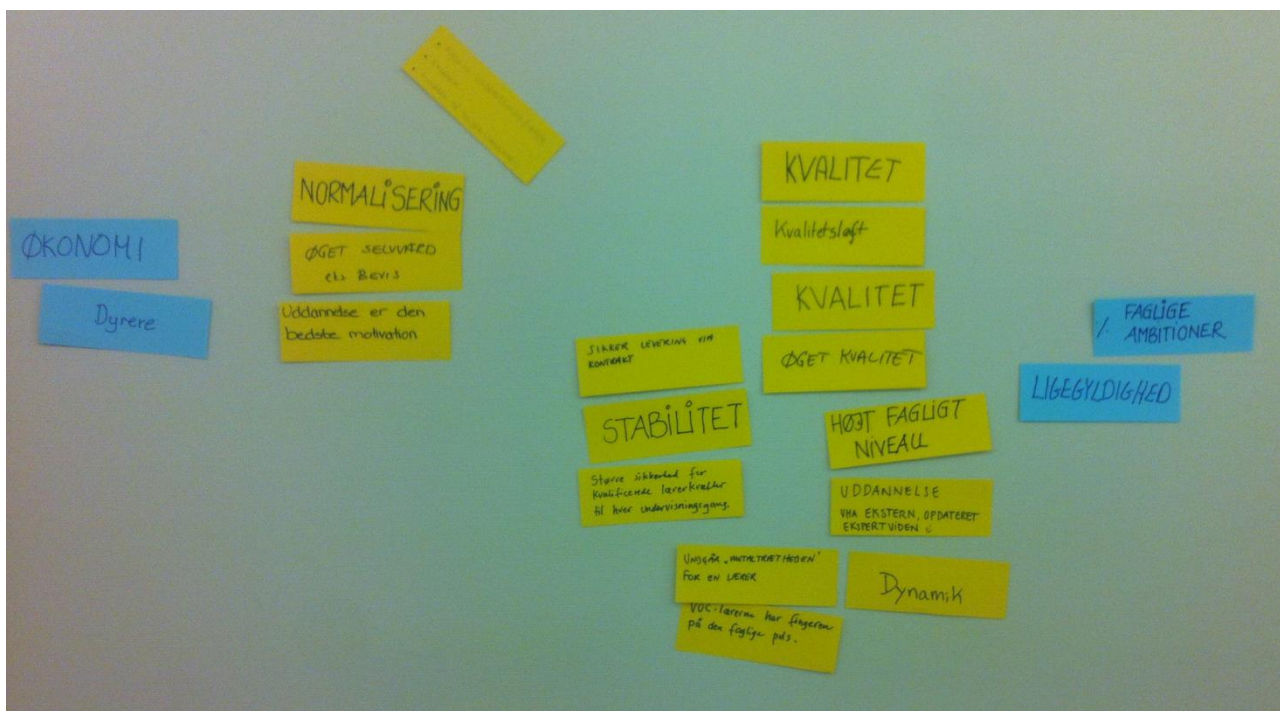 ØKONOMI
Dyrere
NORMALISERING
ØGET SELVVÆRD
eks BEVIS
Uddannelse er den
bedste motivation
SIKKER LEVERING VIA
KONTRAKT
STABILITET
Større sikkerhed for
kvalificerede lærerkræfter
til hver undervisningsgang.
KVALITET
Kvalitetsløft
KVALITET
ØGET KVALITET
HØJT FAGLIGT
NIVEAU
UDDANNELSE
VHA EKSTERN, OPDATERET
EKSPERTVIDEN
UNDGÅR "METALTRÆTHEDEN"
FOR EN LÆRER
VUC-lærerne har fingeren
på den faglige puls.
Dynamik
./. FAGLIGE
AMBITIONER
LIGEGYLDIGHED